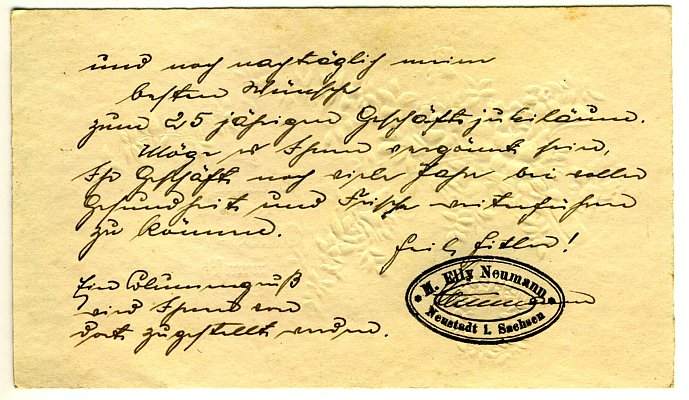 und noch nachträglich meine
besten Wünsche
zum 25 jährigen Geschäftsjubiläum.
Möge es Ihnen vergönnt sein,
Ihr Geschäft noch viele Jahre bei voller
Gesundheit und Frische weiterführen
zu können.
Heil Hitler!
Ein Blumengruß
wird Ihnen von
dort zugestellt werden.
M. Elly Neumann
Neustadt i. Sachsen